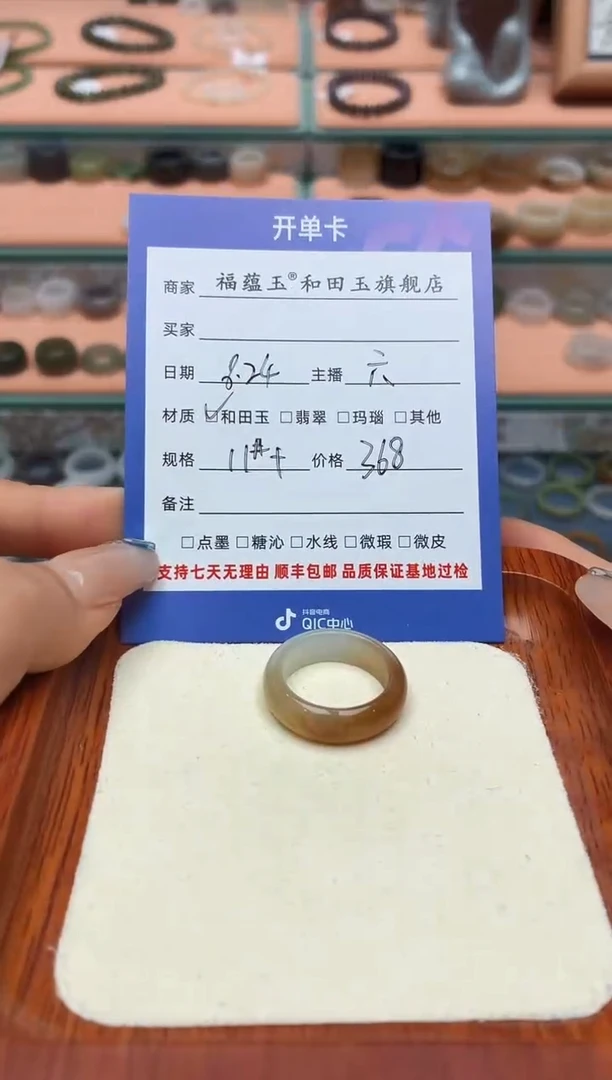 开单卡
商家 福蕴玉®和田玉旗舰店
买家
日期 8.24 主播 六
材质 ☑和田玉 □翡翠 □玛瑙 □其他
规格 11#+ 价格 368
备注
□点墨 □糖沁 □水线 □微瑕 □微皮
支持七天无理由 顺丰包邮 品质保证基地过检
抖音电商
QIC中心